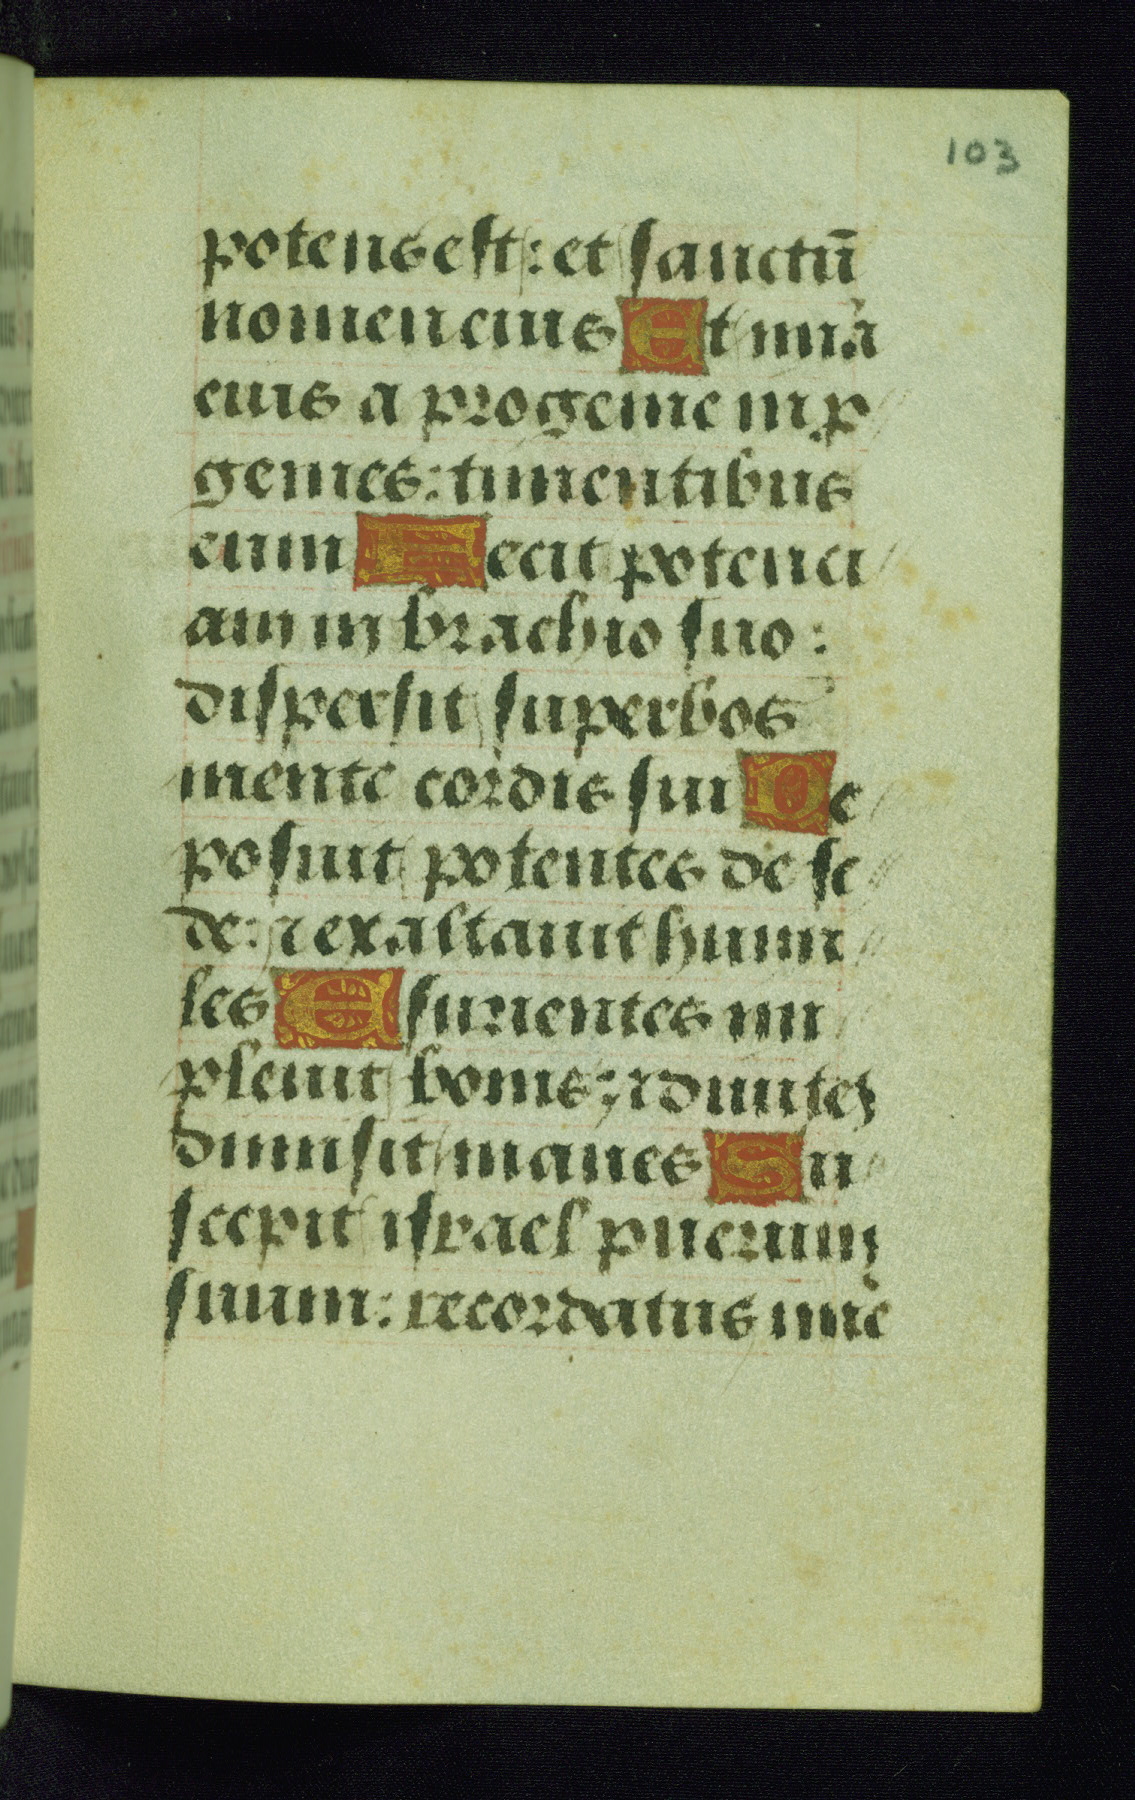 103
potens est: et sanctū
nomen eius Et mīa
eius a progenie in p
genies: timentibus
eum Fecit potenci
am in brachio suo:
dispersit superbos
mente cordis sui De
posuit potentes de se
de: ⁊ exaltauit humi
les Esurientes im
pleuit bonis: ⁊ diuites
dimisit inanes Su
scepit israel puerum
suum: recordatus mīe